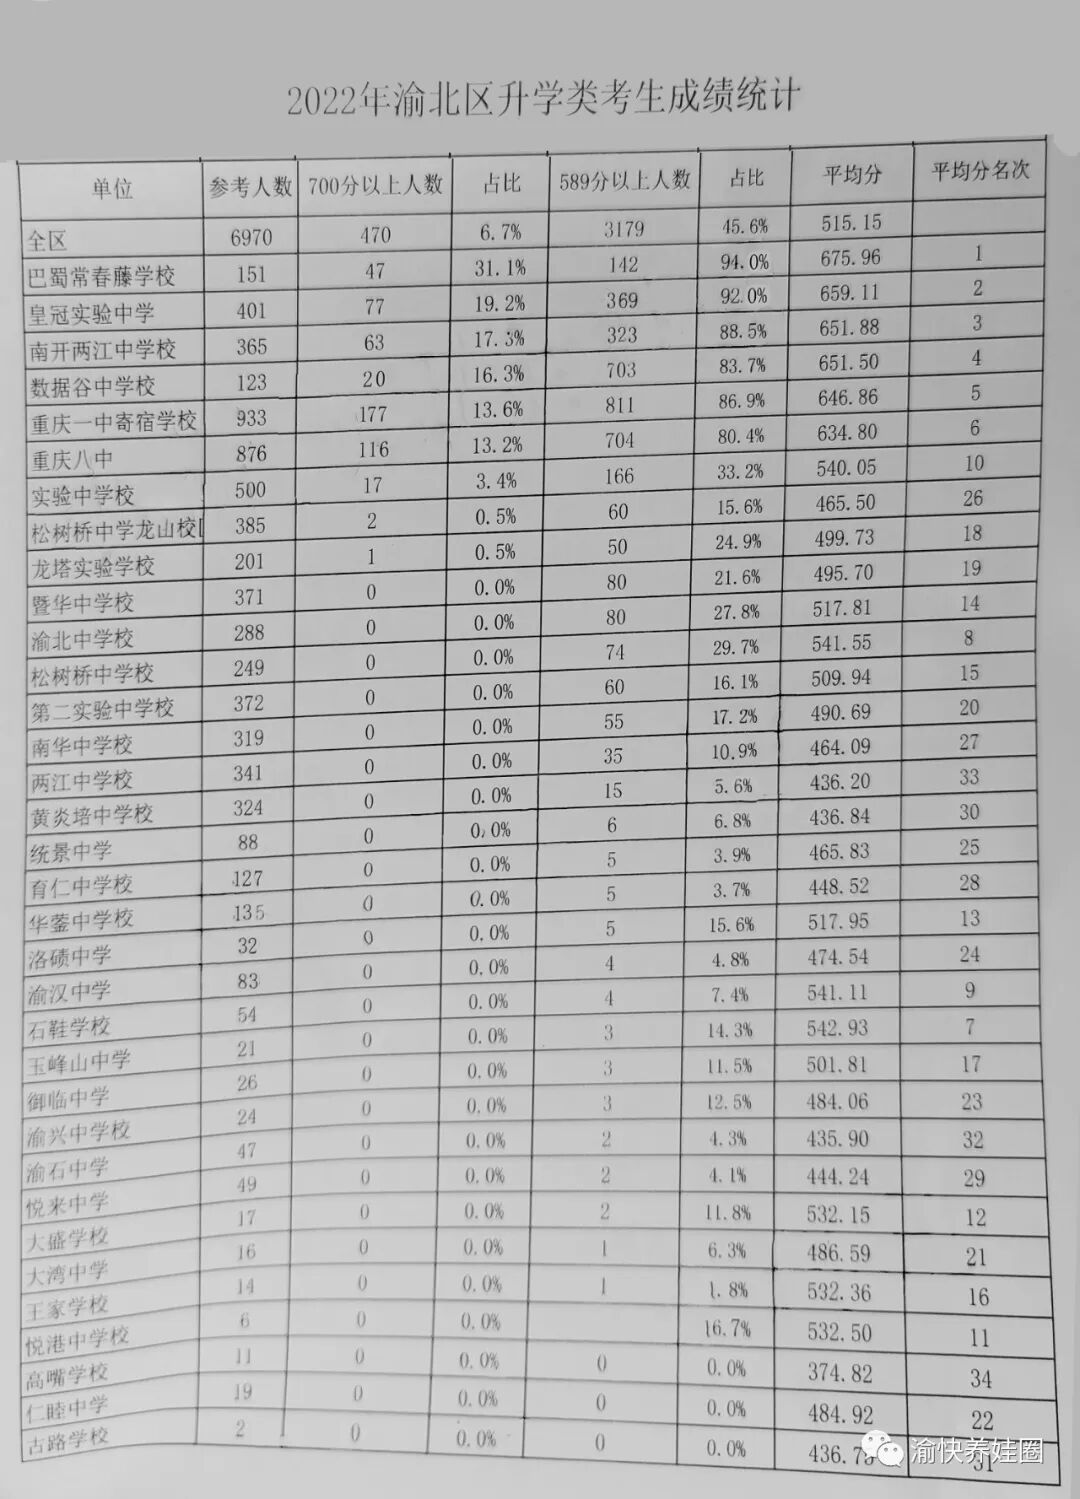 2022年渝北区升学类考生成绩统计
单位 参考人数 700分以上人数 占比 589分以上人数 占比 平均分 平均分名次
全区 6970 470 6.7% 3179 45.6% 515.15
巴蜀常春藤学校 151 47 31.1% 142 94.0% 675.96 1
皇冠实验中学 401 77 19.2% 369 92.0% 659.11 2
南开两江中学校 365 63 17.3% 323 88.5% 651.88 3
数据谷中学校 123 20 16.3% 703 83.7% 651.50 4
重庆一中寄宿学校 933 177 13.6% 811 86.9% 646.86 5
重庆八中 876 116 13.2% 704 80.4% 634.80 6
实验中学校 500 17 3.4% 166 33.2% 540.05 10
松树桥中学龙山校 385 2 0.5% 60 15.6% 465.50 26
龙塔实验学校 201 1 0.5% 50 24.9% 499.73 18
暨华中学校 371 0 0.0% 80 21.6% 495.70 19
渝北中学校 288 0 0.0% 80 27.8% 517.81 14
松树桥中学校 249 0 0.0% 74 29.7% 541.55 8
第二实验中学校 372 0 0.0% 60 16.1% 509.94 15
南华中学校 319 0 0.0% 55 17.2% 490.69 20
两江中学校 341 0 0.0% 35 10.9% 464.09 27
黄炎培中学校 324 0 0.0% 15 5.6% 436.20 33
统景中学 88 0 0.0% 6 6.8% 436.84 30
育仁中学校 127 0 0.0% 5 3.9% 465.83 25
华蓥中学校 135 0 0.0% 5 3.7% 448.52 28
洛碛中学 32 0 0.0% 5 15.6% 517.95 13
渝汉中学 83 0 0.0% 4 4.8% 474.54 24
石鞋学校 54 0 0.0% 4 7.4% 541.11 9
玉峰山中学 21 0 0.0% 3 14.3% 542.93 7
御临中学 26 0 0.0% 3 11.5% 501.81 17
渝兴中学校 24 0 0.0% 3 12.5% 484.06 23
渝石中学 47 0 0.0% 2 4.3% 435.90 32
悦来中学 49 0 0.0% 2 4.1% 444.24 29
大盛学校 17 0 0.0% 2 11.8% 532.15 12
大湾中学 16 0 0.0% 1 6.3% 486.59 21
王家学校 14 0 0.0% 1 1.8% 532.36 16
悦港中学校 6 0 0.0% 16.7% 532.50 11
高嘴学校 11 0 0.0% 0 0.0% 374.82 34
仁睦中学 19 0 0.0% 0 0.0% 484.92 22
古路学校 2 0 0.0% 0 0.0% 31
渝快养娃圈